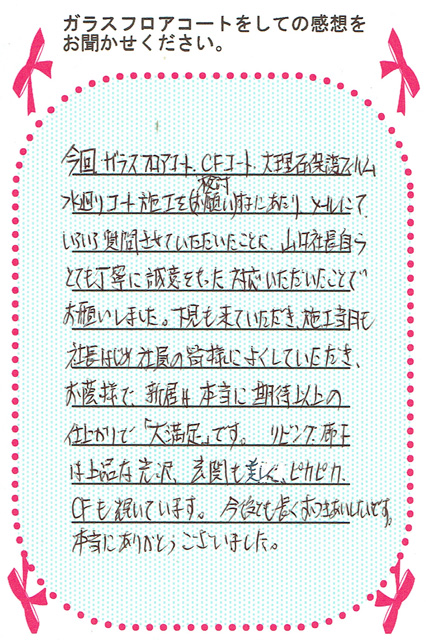 ガラスフロアコートをしての感想を
お聞かせください。
今回 ガラスフロアコート、CFコート、大理石保護フィルム
水廻りコート施工を(お願い)検討するにあたり メールにて、
いろいろ質問させていただいたことに、山下社長自ら
とても丁寧に誠意をもった対応いただいたことで
お願いしました。下見も来ていただき、施工当日も
社長はじめ社員の皆様によくしていただき、
お蔭様で、新居は本当に期待以上の
仕上がりで「大満足」です。リビング、廊下
は上品な光沢、玄関も美しく、ピカピカ
CFも輝いています。今後とも長くおつきあいしたいです。
本当にありがとうございました。